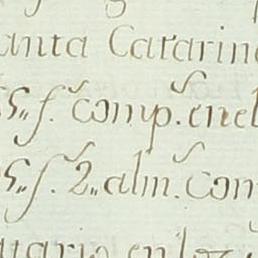 anta Catarin
s,, f. comp. en el
s,, f. 2,, alm. Com
atario en los